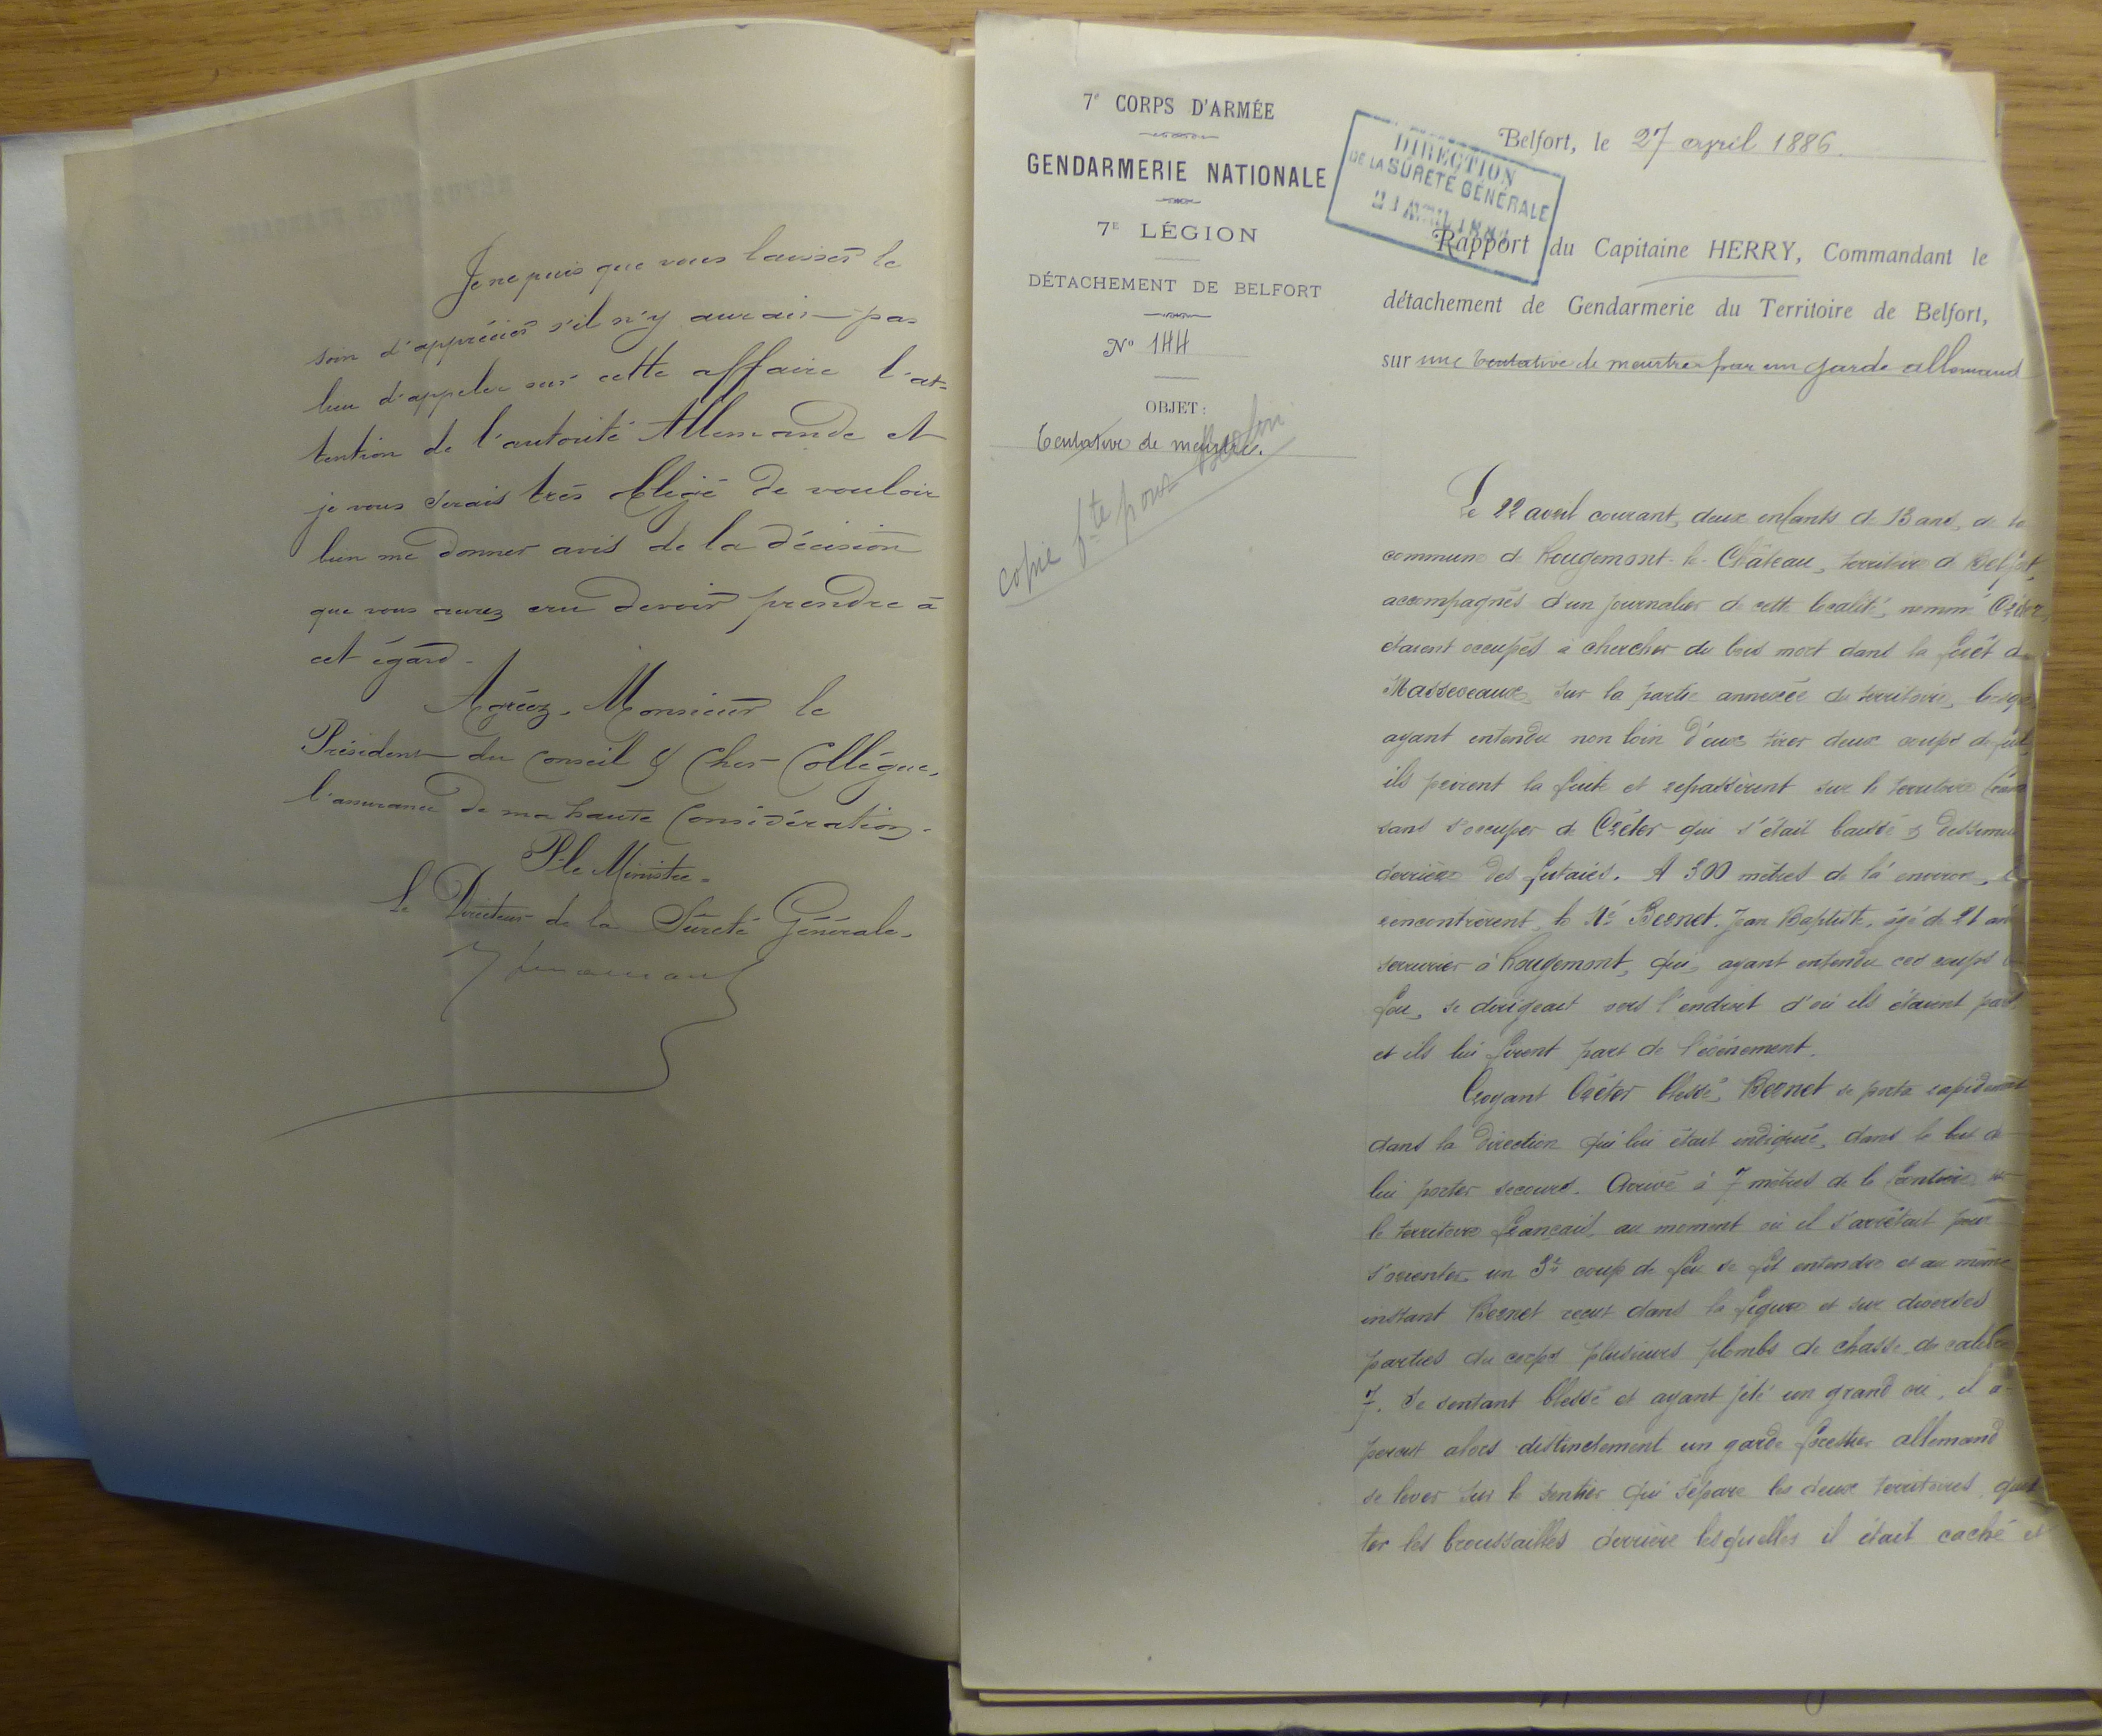 Je ne puis que vous laisser le
soin d'apprécier s'il n'y aurait pas
lieu d'appeler sur cette affaire l'at-
tention de l'autorité Allemande et
je vous serais très obligé de vouloir
bien me donner avis de la décision
que vous aurez cru devoir prendre à
cet égard.
Agréez, Monsieur le
Président du Conseil & Cher Collègue,
l'assurance de ma haute Considération.
P. le Ministre.
Le Directeur de la Sûreté Générale,
7e CORPS D'ARMÉE
GENDARMERIE NATIONALE
7E LÉGION
DÉTACHEMENT DE BELFORT
No 144
OBJET :
tentative de meurtre.
copie pour Berlin
DIRECTION
DE LA SÛRETÉ GÉNÉRALE
AVRIL
Belfort, le 27 avril 1886.
Rapport du Capitaine HERRY, Commandant le
détachement de Gendarmerie du Territoire de Belfort,
sur une tentative de meurtre par un garde allemand
Le 22 avril courant, deux enfants de 13 ans, de la
commune de Rougemont-le-Château, territoire de Belfort,
accompagnés d'un journalier de cette localité, nommé Créter,
étaient occupés à chercher du bois mort dans la forêt de
Massevaux, sur la partie annexée du territoire, lorsque
ayant entendu non loin d'eux tirer deux coups de fusil
ils prirent la fuite et repassèrent sur le territoire
sans s'occuper de Créter qui s'était baissé & dissimulé
derrière des futaies. A 300 mètres de là environ,
rencontrèrent le Sr Bernet, Jean Baptiste, âgé de 21 ans
serrurier à Rougemont, qui, ayant entendu ces coups de
feu, se dirigeait vers l'endroit d'où ils étaient partis
et ils lui firent part de l'événement.
Croyant Créter blessé, Bernet se porta rapidement
dans la direction qui lui était indiquée, dans le but de
lui porter secours. Arrivé à 7 mètres de la frontière, sur
le territoire français, au moment où il s'arrêtait pour
s'orienter, un 3e coup de feu se fit entendre et au même
instant Bernet reçut dans la figure et sur diverses
parties du corps plusieurs plombs de chasse du calibre
7. Se sentant blessé et ayant jeté un grand cri, il a-
perçut alors distinctement un garde forestier allemand
se lever sur le sentier qui sépare les deux territoires, quit
ter les broussailles derrière lesquelles il était caché et